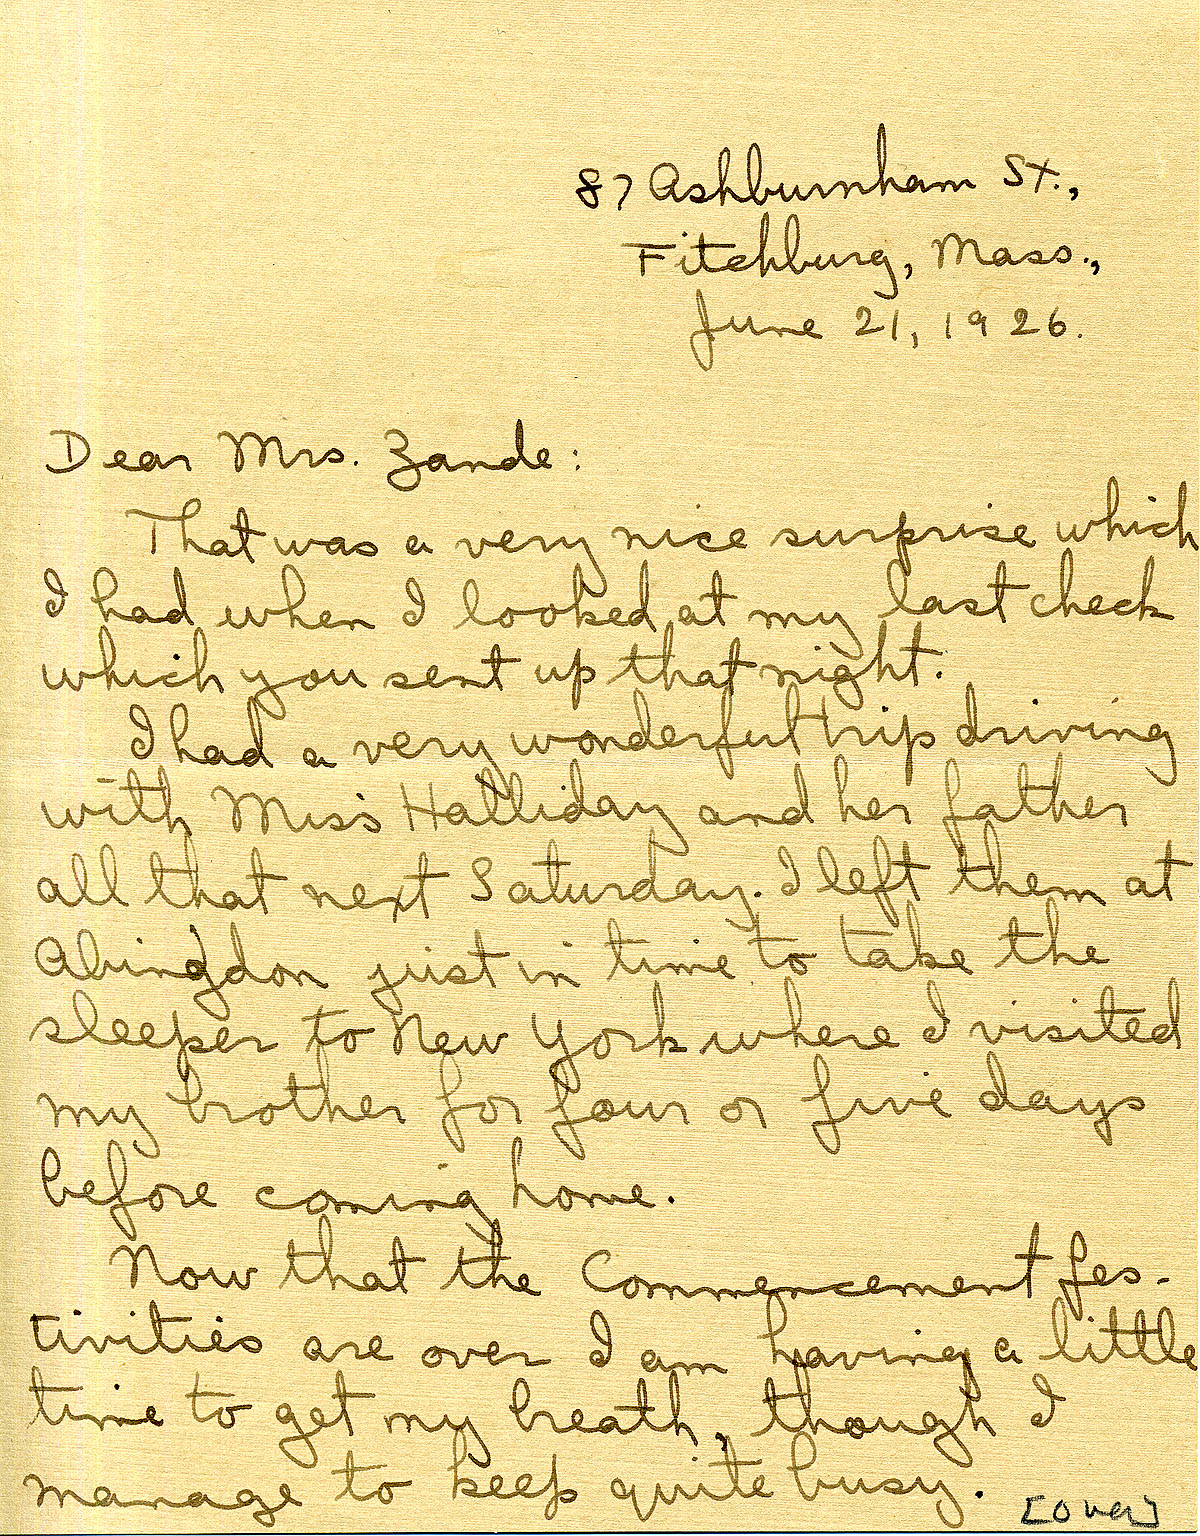 87 Ashburnham St.,
Fitchburg, Mass.,
June 21, 1926.
Dear Mrs. Zande:
That was a very nice surprise which
I had when I looked at my last check
which you sent up that night.
I had a very wonderful trip driving
with Miss Halliday and her father
all that next Saturday. I left them at
Abingdon just in time to take the
sleeper to New York where I visited
my brother for four or five days
before coming home.
Now that the Commencement fes-
tivities are over I am having a little
time to get my breath, though I
manage to keep quite busy.
[over]